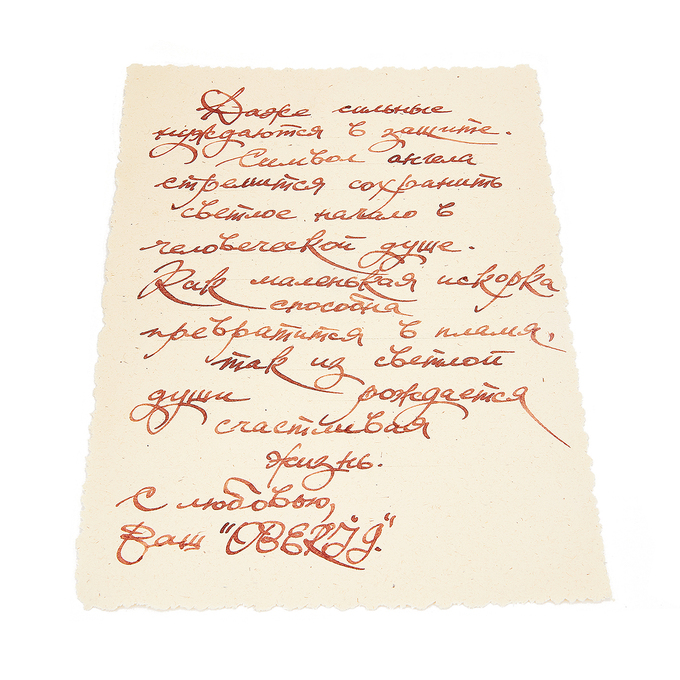 Даже сильные
нуждаются в защите.
Символ ангела
стремится сохранить
светлое начало в
человеческой душе.
Как маленькая искорка
способна
превратится в пламя,
так из светлой
души рождается
счастливая
жизнь.
С любовью,
Ваш "OBEREJG."